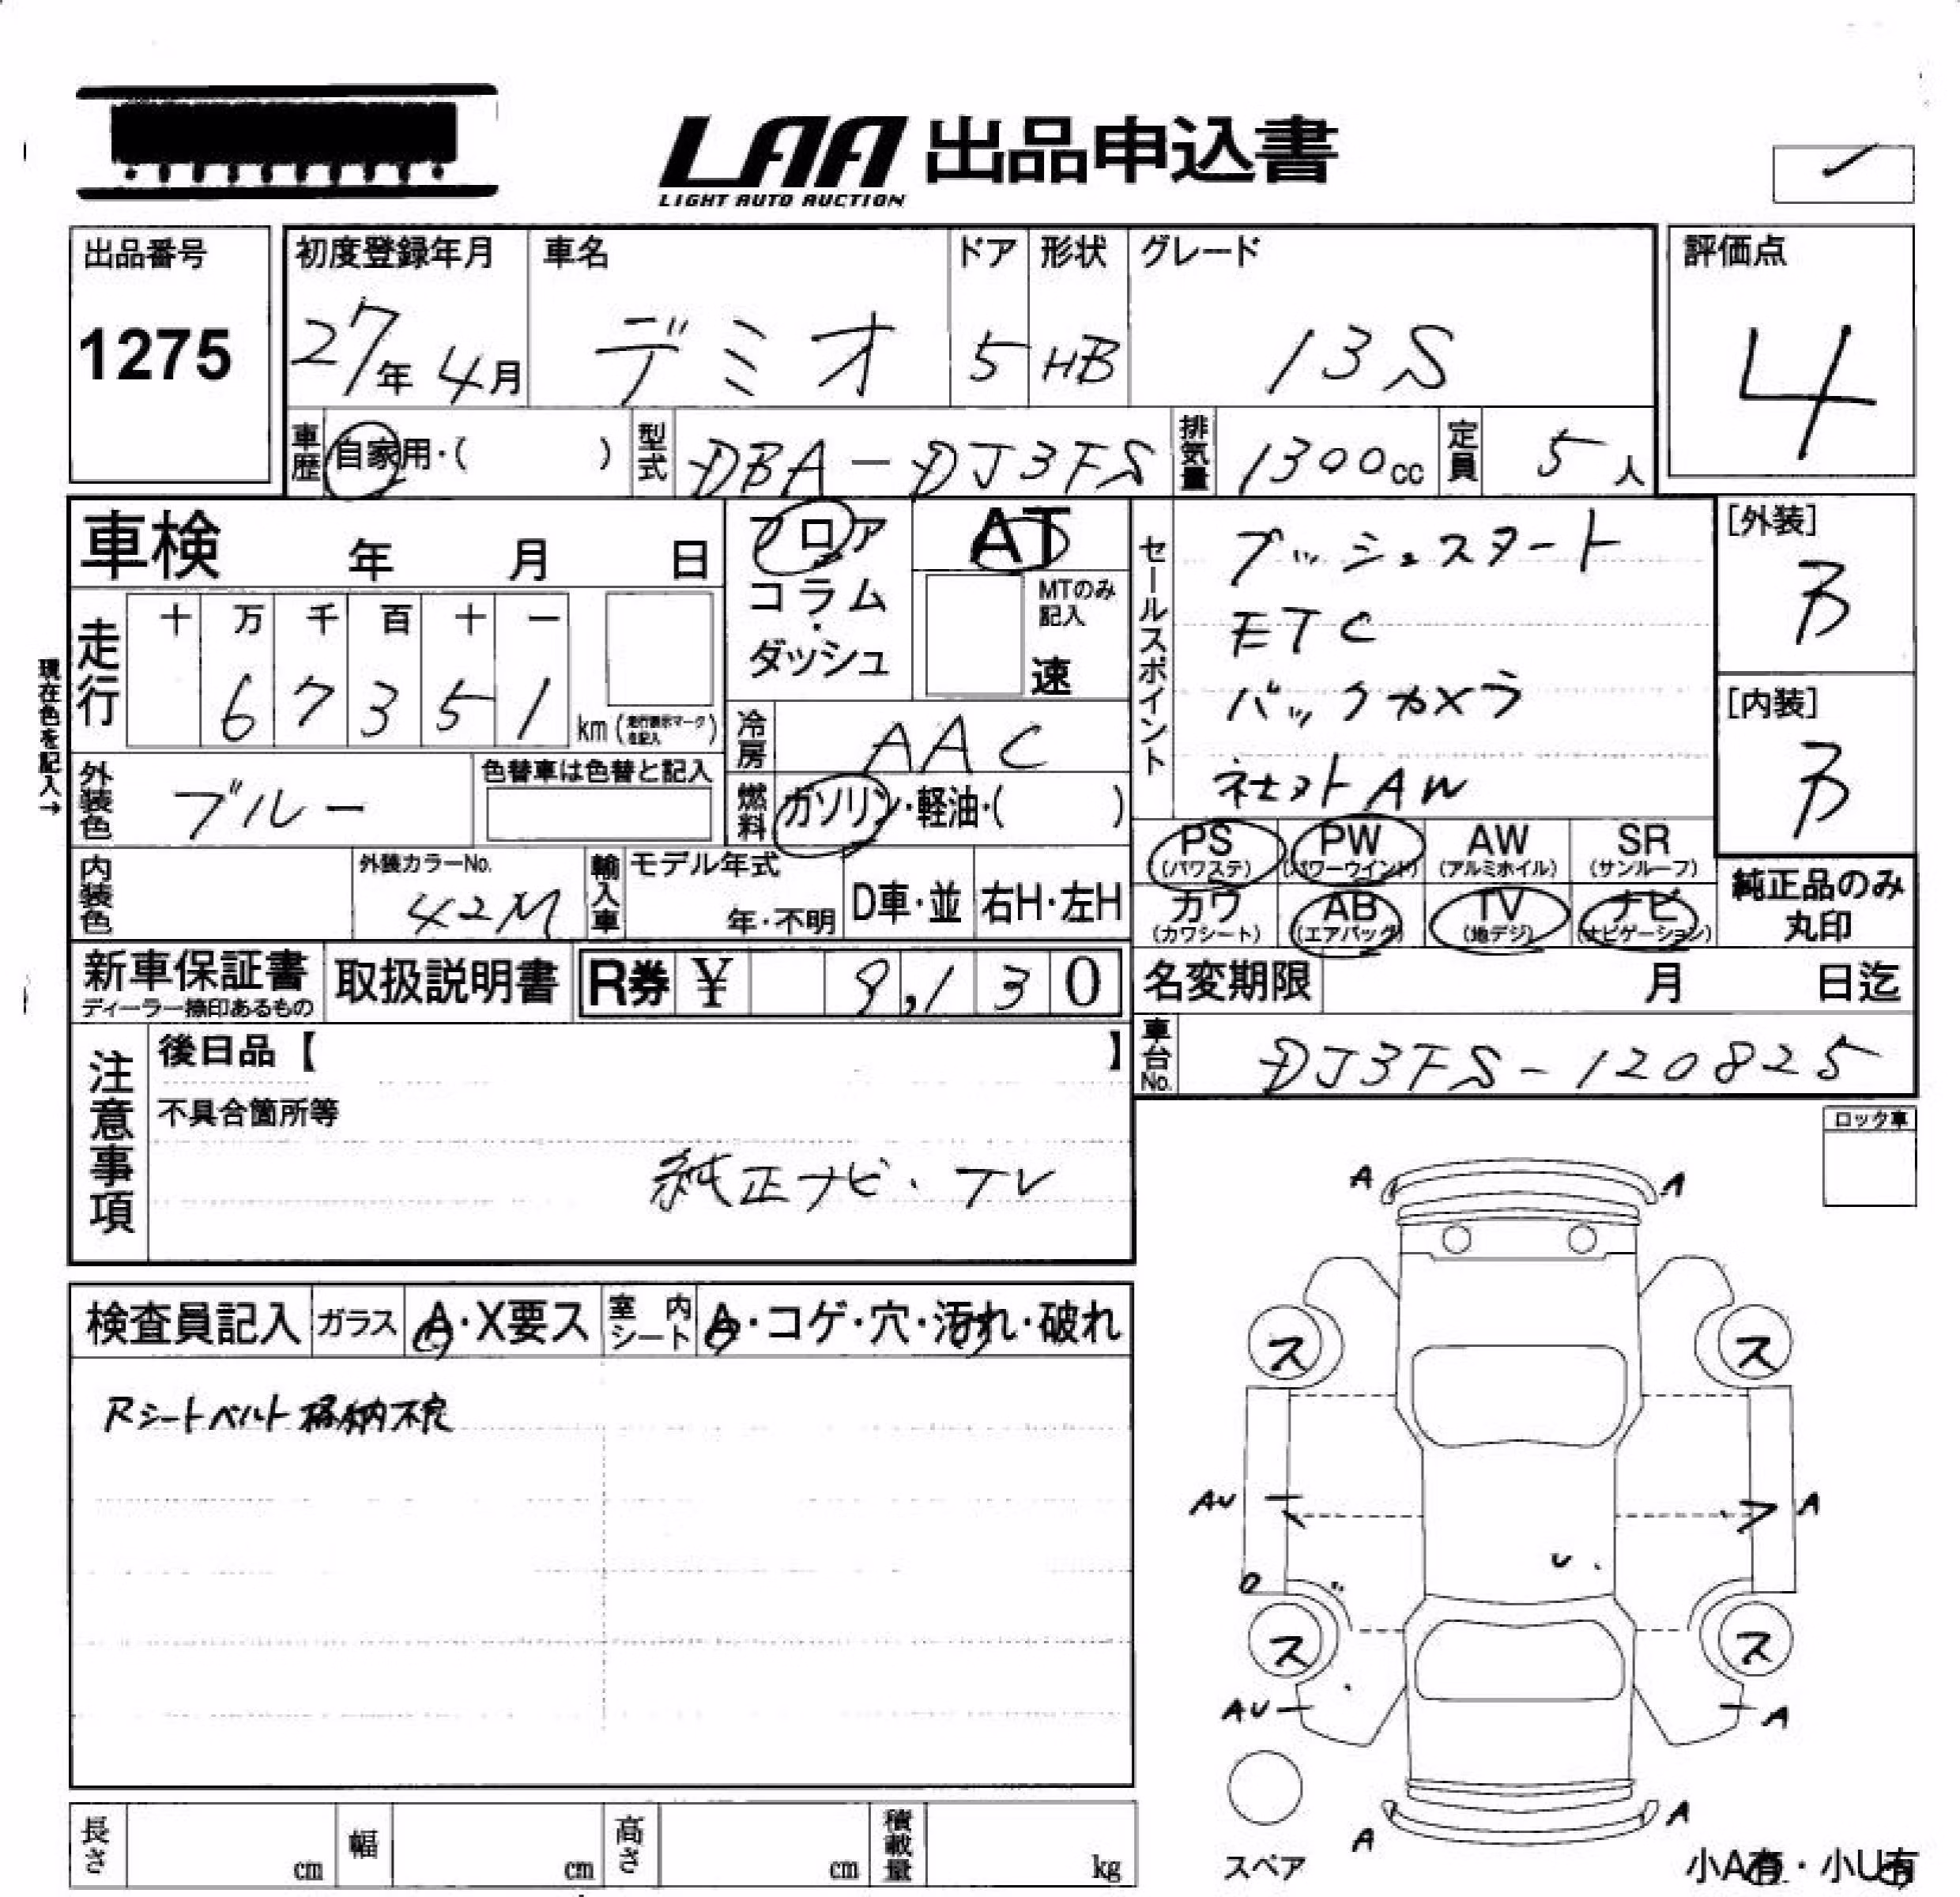 LAA 出品申込書
LIGHT AUTO AUCTION
出品番号
1275
初度登録年月
27年 4月
車名
デミオ
ドア
5
形状
HB
グレード
13S
評価点
4
車歴
自家用・( )
型式
DBA-DJ3FS
排気量
1300cc
定員
5人
車検 年 月 日
フロア
コラム
・
ダッシュ
AT
MTのみ
記入
速
セールスポイント
プッシュスタート
ETC
バックカメラ
社外AW
[外装]
B
[内装]
B
現在色を記入→
走行
十 万 千 百 十 一
6 7 3 5 1
km(走行表示マークを記入)
冷房
AAC
外装色
ブルー
色替車は色替と記入
燃料
ガソリン・軽油・( )
PS
(パワステ)
PW
(パワーウインド)
AW
(アルミホイル)
SR
(サンルーフ)
カワ
(カワシート)
AB
(エアバッグ)
TV
(地デジ)
ナビ
(ナビゲーション)
純正品のみ
丸印
内装色
外装カラーNo.
42M
輸入車
モデル年式
年・不明
D車・並
右H・左H
新車保証書
ディーラー捺印あるもの
取扱説明書
R券 ¥ 9,130
名変期限 月 日迄
車台No.
DJ3FS-120825
注意事項
後日品【 】
不具合箇所等
純正ナビ・TV
ロック車
検査員記入
ガラス
A・X要ス
室内シート
A・コゲ・穴・汚れ・破れ
Rシートベルト格納不良
A A
ス ス
AU A
U
ス ス
AU A
A A
スペア
小A有・小U有
長さ cm
幅 cm
高さ cm
積載量 kg